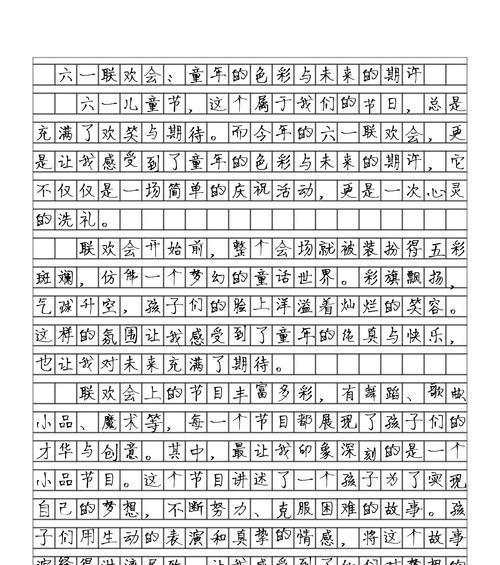 六一联欢会：童年的色彩与未来的期许
六一儿童节，这个属于我们的节日，总是
充满了欢笑与期待。而今年的六一联欢会，更
是让我感受到了童年的色彩与未来的期许，它
不仅仅是一场简单的庆祝活动，更是一次心灵
的洗礼。
联欢会开始前，整个会场就被装扮得五彩
斑斓，仿佛一个梦幻的童话世界。彩旗飘扬，
气球升空，孩子们的脸上洋溢着灿烂的笑容。
这样的氛围让我感受到了童年的纯真与快乐，
也让我对未来充满了期待。
联欢会上的节目丰富多彩，有舞蹈、歌曲
小品、魔术等，每一个节目都展现了孩子们的
才华与创意。其中，最让我印象深刻的是一个
小品节目。这个节目讲述了一个孩子为了实现
自己的梦想，不断努力、克服困难的故事。孩
子们用生动的表演和真挚的情感，将这个故事
演绎得淋漓尽致，让我感受到了他们对梦想的